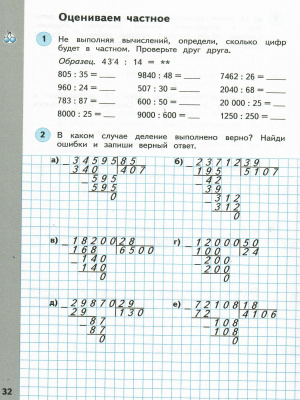 Оцениваем частное
1 Не выполняя вычислений, определи, сколько цифр
будет в частном. Проверьте друг друга.
Образец. 43'4 : 14 = **
805 : 35 = 9840 : 48 = 7462 : 26 =
960 : 24 = 507 : 30 = 2040 : 68 =
783 : 87 = 600 : 50 = 20 000 : 25 =
8000 : 25 = 9000 : 600 = 1250 : 250 =
2 В каком случае деление выполнено верно? Найди
ошибки и запиши верный ответ.
а) 34595 85 б) 23712 39
340 407 195 5107
595 42
595 39
0 312
312
0
в) 18200 28 г) 12000 50
168 6500 100 24
140 200
140 200
0 0
д) 29870 29 е) 72108 18
29 130 72 4106
87 108
87 108
0 0
32